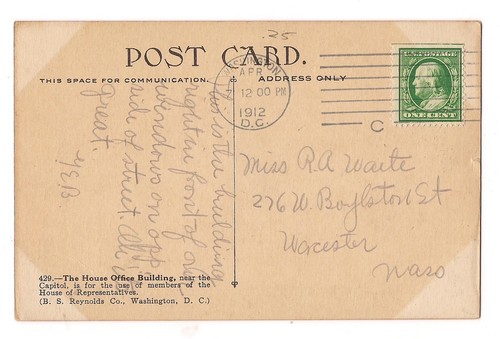 25
POST CARD.
THIS SPACE FOR COMMUNICATION.
ADDRESS ONLY
WASHINGTON
APR
12 00 PM
1912
D.C.
C
U.S. POSTAGE
ONE CENT
is the buildings
right in front of our
windows on opp
side of street.
Great.
Miss R A Waite
276 W. Boylston St
Worcester
Mass
429.—The House Office Building, near the
Capitol, is for the use of members of the
House of Representatives.
(B. S. Reynolds Co., Washington, D. C.)